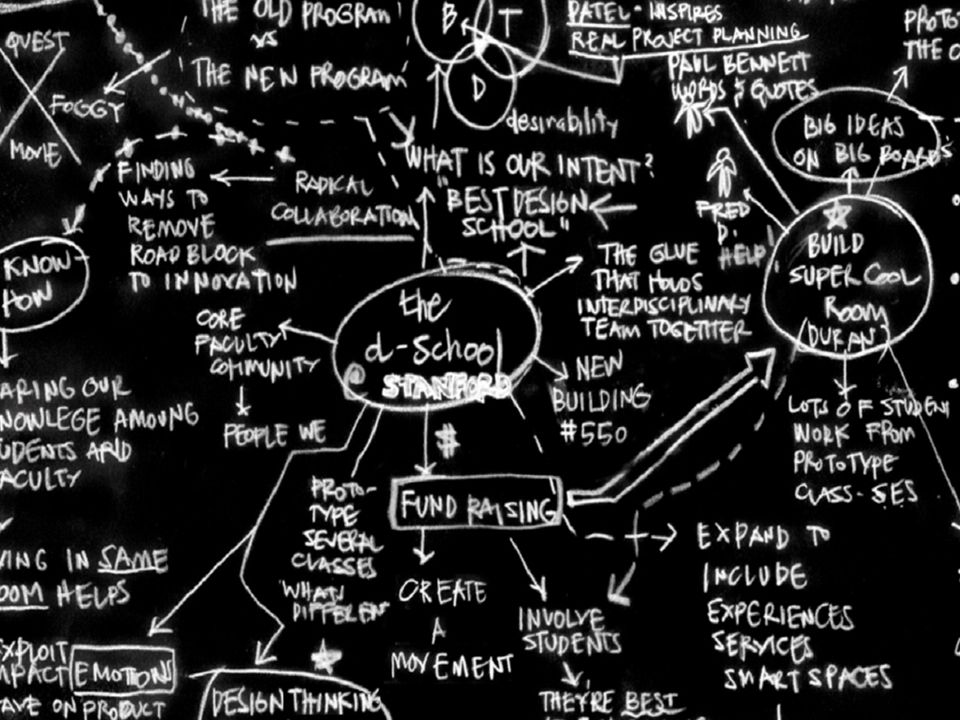 QUEST
FOGGY
MOVIE
THE OLD PROGRAM
VS
THE NEW PROGRAM
B
T
D
desirability
PATEL - INSPIRES
REAL PROJECT PLANNING
PAUL BENNETT
WORDS & QUOTES
PROTOT
THE
BIG IDEAS
ON BIG BOARDS
FINDING
WAYS TO
REMOVE
ROAD BLOCK
TO INNOVATION
RADICAL
COLLABORATION
WHAT IS OUR INTENT?
"BEST DESIGN
SCHOOL"
FRED
D.
HELP!
BUILD
SUPER COOL
ROOM
(DURAN)
THE GLUE
THAT HOLDS
INTERDISCIPLINARY
TEAM TOGETTER
KNOW-
HOW
the
d-school
STANFORD
CORE
FACULTY
COMMUNITY
PEOPLE WE
NEW
BUILDING
#550
ARING OUR
NOWLEGE AMOUNG
UDENTS AND
ACULTY
LOTS OF STUDENT
WORK FROM
PROTOTYPE
CLASS-SES
$
FUND RAISING
PROTO-
TYPE
SEVERAL
CLASSES
"WHATS
DIFFEREN
CREATE
A
MOVEMENT
INVOLVE
STUDENTS
THEY'RE BEST
EXPAND TO
INCLUDE
EXPERIENCES
SERVICES
SMART SPACES
VING IN SAME
OOM HELPS
EXPLOIT
MPACT EMOTIONS
AVE ON PRODUCT
DESIGN THINKING